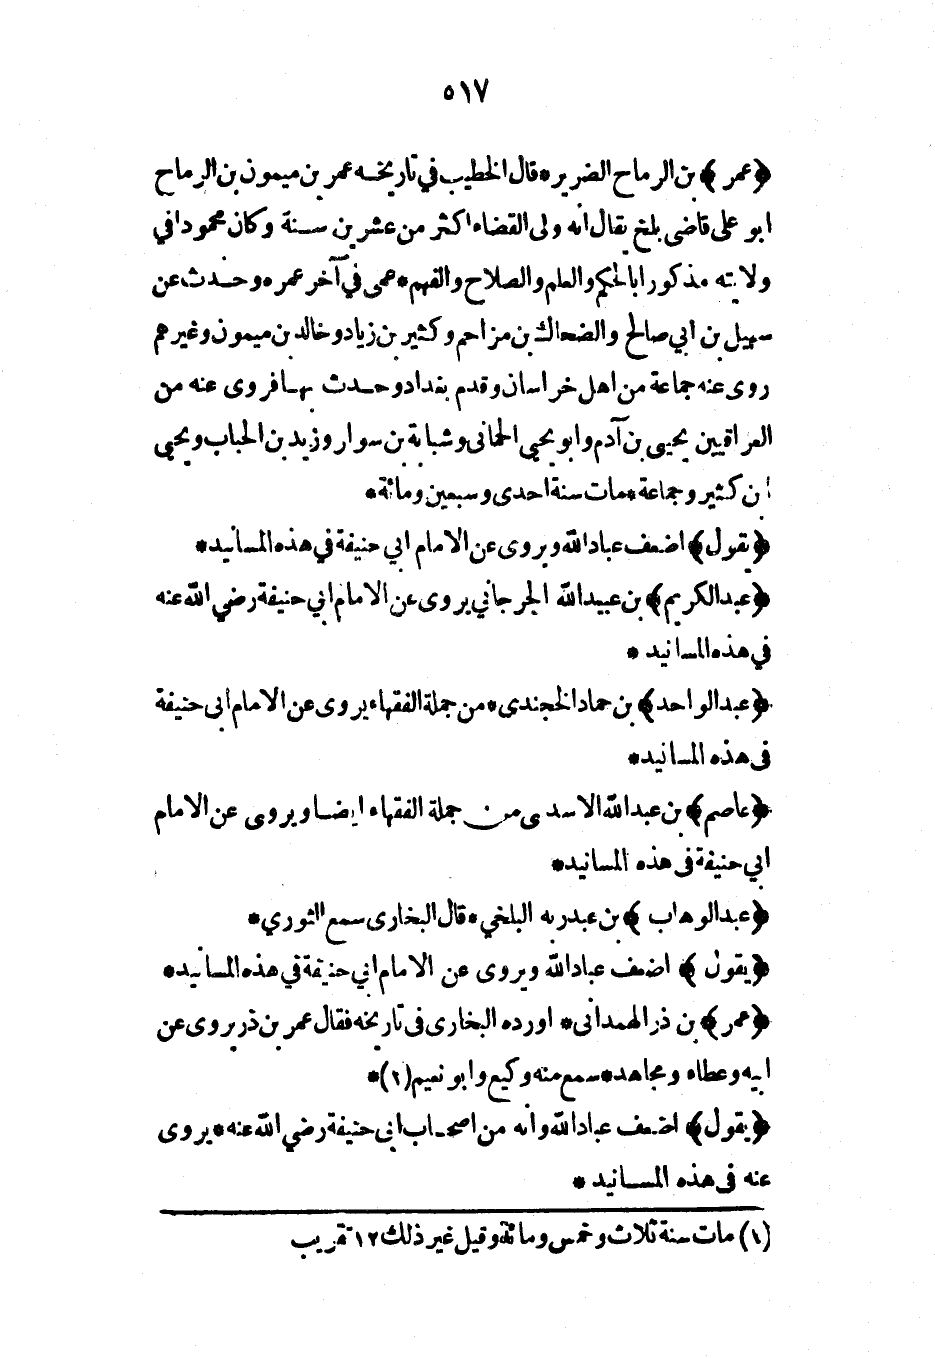 ٥١٧
﴿عمر﴾ بن الرماح الضرير * قال الخطيب في تاريخه عمر بن ميمون بن الرماح
ابو على قاضى بلخ يقال انه ولى القضاء اكثر من عشرين سنة وكان محمودا في
ولايته مذكورا بالحكم والعلم والصلاح والفهم * عمى في آخر عمره * وحدث عن
سهيل بن ابي صالح والضحاك بن مزاحم وكثير بن زياد وخالد بن ميمون وغيرهم
روى عنه جماعة من اهل خراسان وقدم بغداد وحدث بها فروى عنه من
العراقيين يحيى بن آدم وابو يحيى الحمانى وشبابة بن سوار وزيد بن الحباب ويحيى
ابن كثير وجماعة * مات سنة احدى وسبعين ومائة *
﴿يقول﴾ اضعف عباد الله ويروى عن الامام ابي حنيفة في هذه المسانيد *
﴿عبد الكريم﴾ بن عبيد الله الجرجاني يروى عن الامام ابي حنيفة رضي الله عنه
في هذه المسانيد *
﴿عبد الواحد﴾ بن حماد الخجندى * من جملة الفقهاء يروى عن الامام ابى حنيفة
فى هذه المسانيد *
﴿عاصم﴾ بن عبد الله الاسدى من جملة الفقهاء ايضا ويروى عن الامام
ابي حنيفة فى هذه المسانيد *
﴿عبد الوهاب﴾ بن عبد ربه البلخي * قال البخارى سمع الثوري *
﴿يقول﴾ اضعف عباد الله ويروى عن الامام ابي حنيفة في هذه المسانيد *
﴿عمر﴾ بن ذر الهمدانى * اورده البخارى فى تاريخه فقال عمر بن ذر يروى عن
ابيه وعطاء ومجاهد * سمع منه وكيع وابو نعيم (١) *
﴿يقول﴾ اضعف عباد الله وانه من اصحاب ابى حنيفة رضي الله عنه * يروى
عنه فى هذه المسانيد *
(١) مات سنة ثلاث وخمس ومائة وقيل غير ذلك ١٢ تقريب